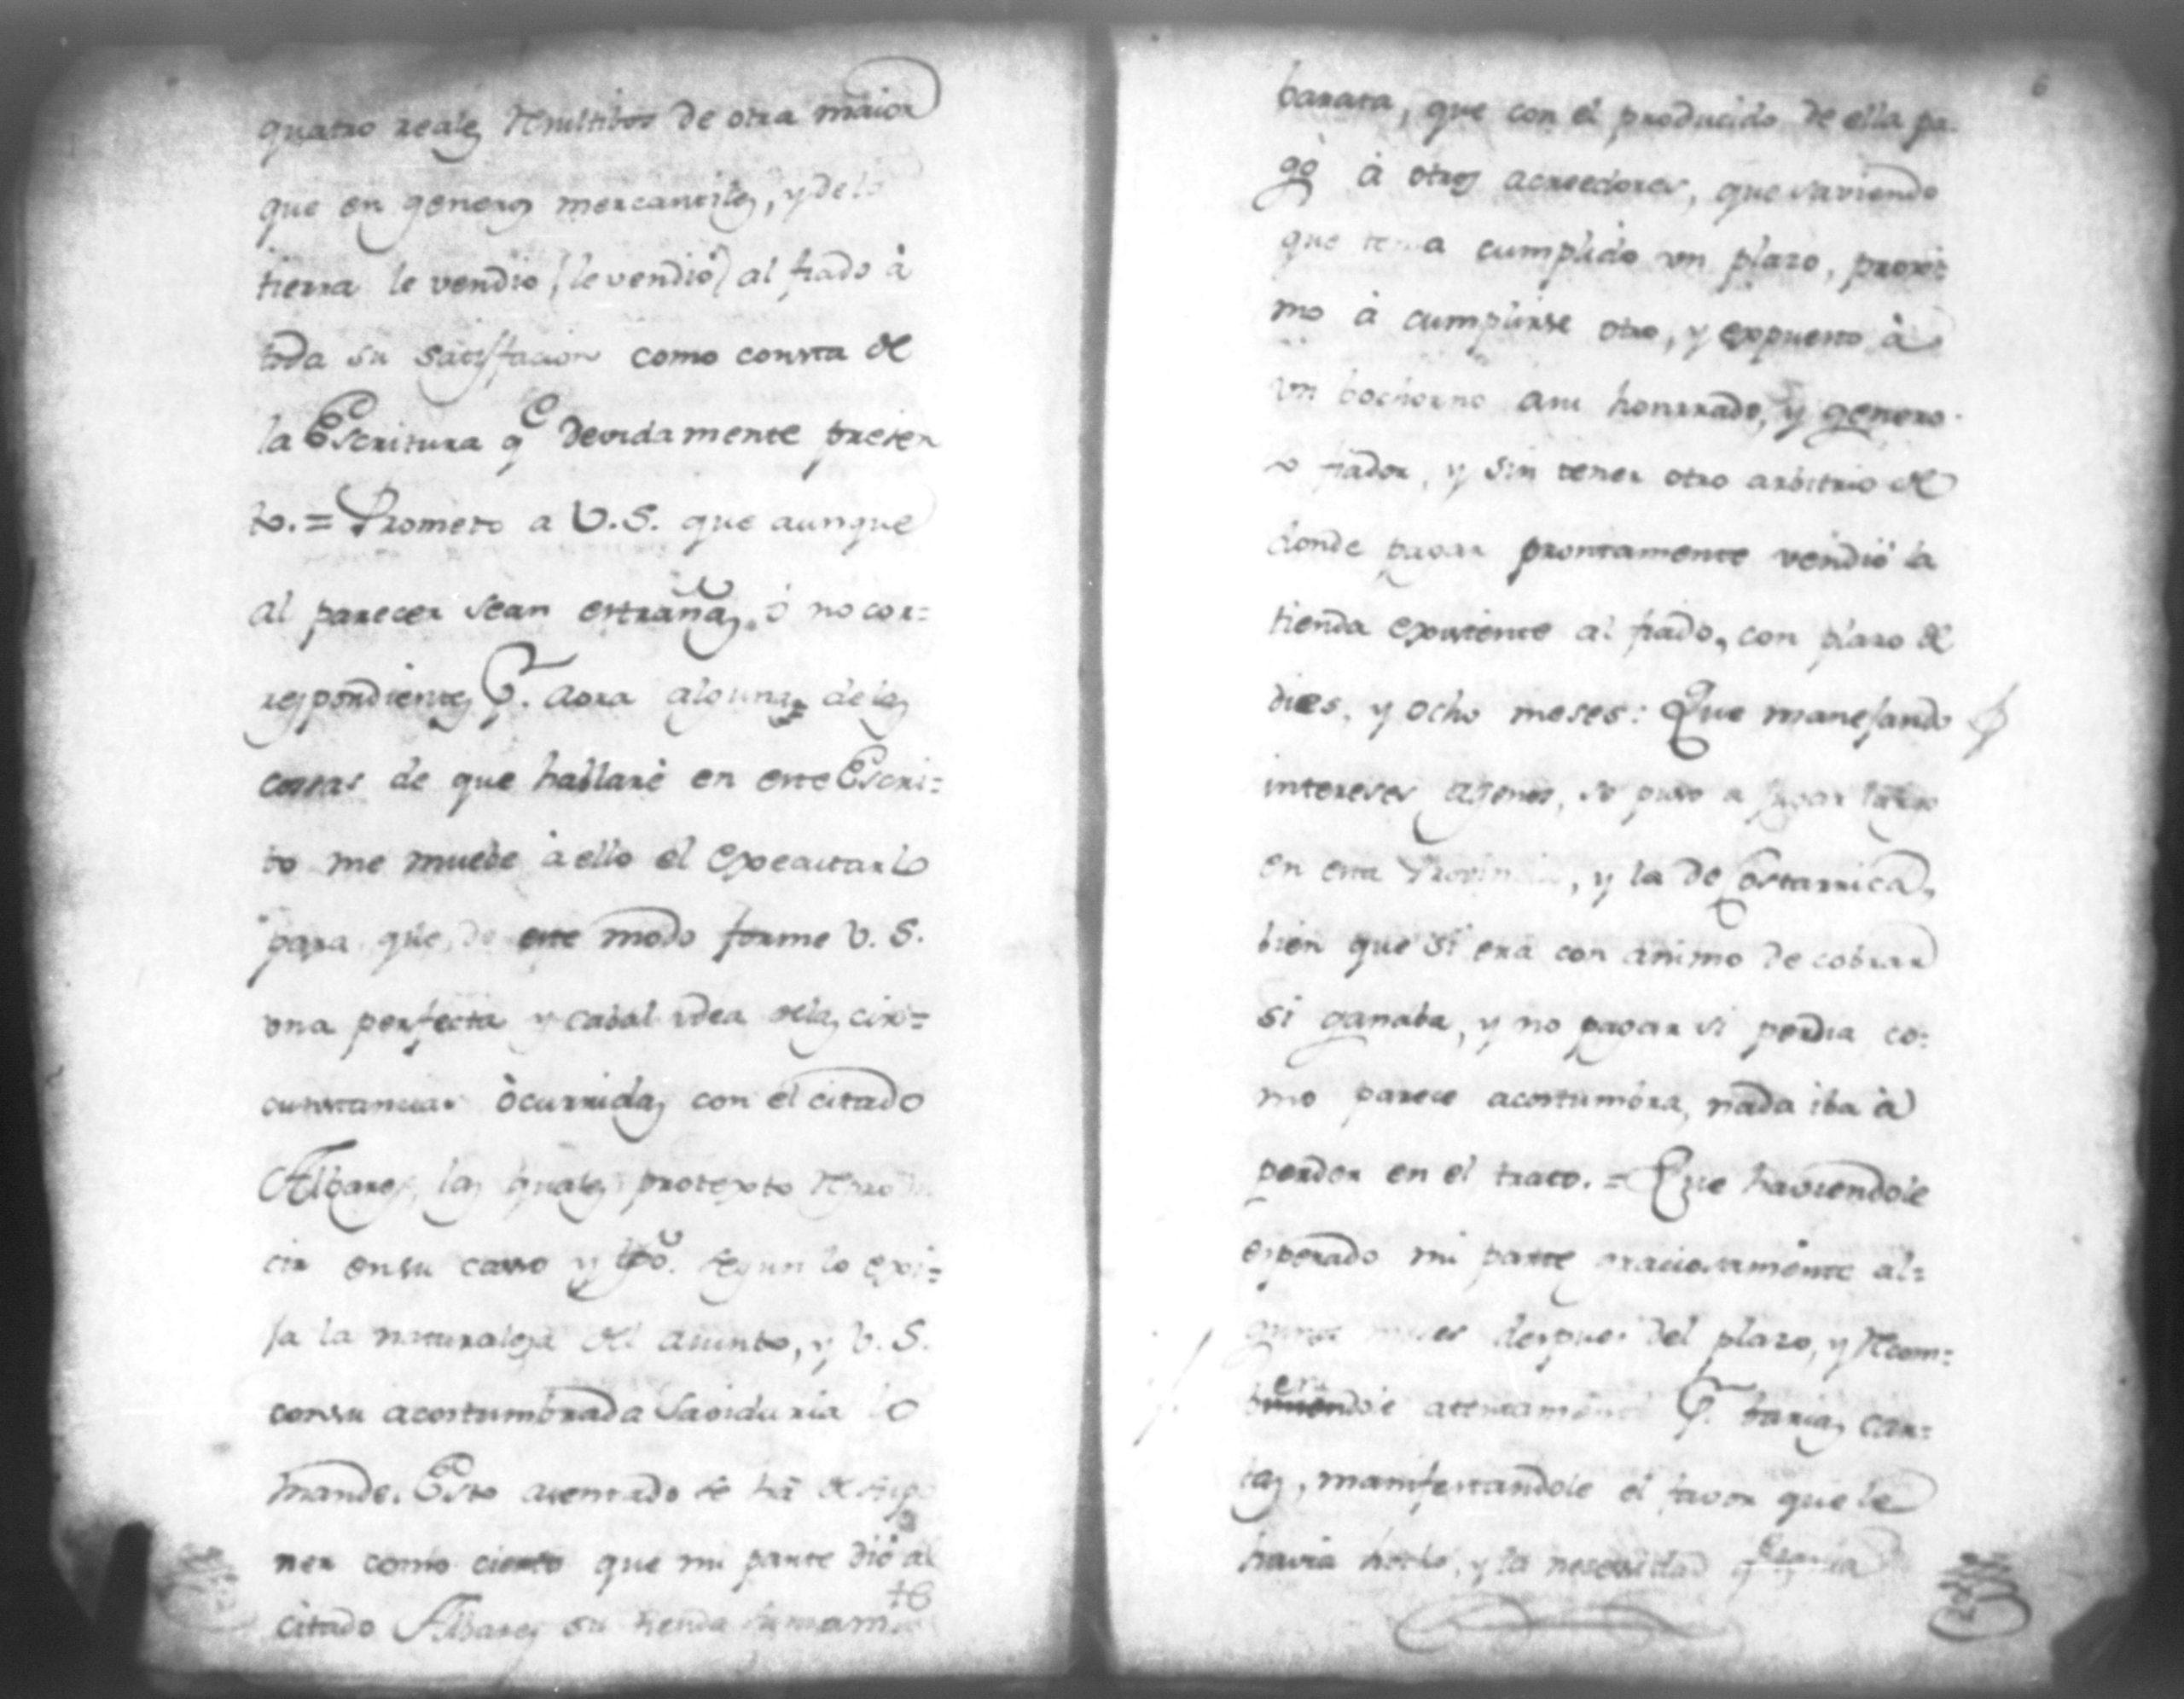 quatro reales Resultibos de otra maior
que en generos mercantiles, y de la
tierra le vendio (le vendió) al fiado à
toda su satisfacion como consta de
la Escritura qe devidamente presen
to. = Prometo a V.S. que aunque
al parecer sean estrañas, ó no cor=
respondientes Pr. aora algunas delas
cosas de que hablaré en este Escri=
to me muebe à ello el expeautarlo
para que de este modo forme V.S.
una perfecta y cabal idea delas cir=
cunstancias òcurridas con el citado
Albares, las quales protexto Reprodu
cir en su casso y tpo. segun lo exi=
ja la naturaleza del asunto, y V.S.
con su acostumbrada Saviduria lo
mande. Esto asentado se ha de supo
ner como cierto que mi parte dió al
citado Albares su tienda sumamte
6
barata, que con el producido de ella pa-
gó à otros acreedores, que saviendo
que tenia cumplido un plazo, proxi=
mo à cumplirse otro, y expuesto à
un bochorno a su honrrado, y genero-
so fiador, y sin tener otro arbitrio de
donde pagar prontamente vendió la
tienda existente al fiado, con plazo de
dies, y ocho meses: Que manejando
intereses agenos, se puso a jugar largo
en esta Provincia, y la de Costarrica,
bien que si era con animo de cobrar
si ganaba, y no pagar si perdia co=
mo parece acostumbra, nada iba à
perder en el trato. = Que haviendole
esperado mi parte graciosamente al=
gunos meses despues del plazo, y Recom=
biniendole atentamente Pr. barias car=
tas, manifestandole el favor que le
havia hecho, y la necesidad q